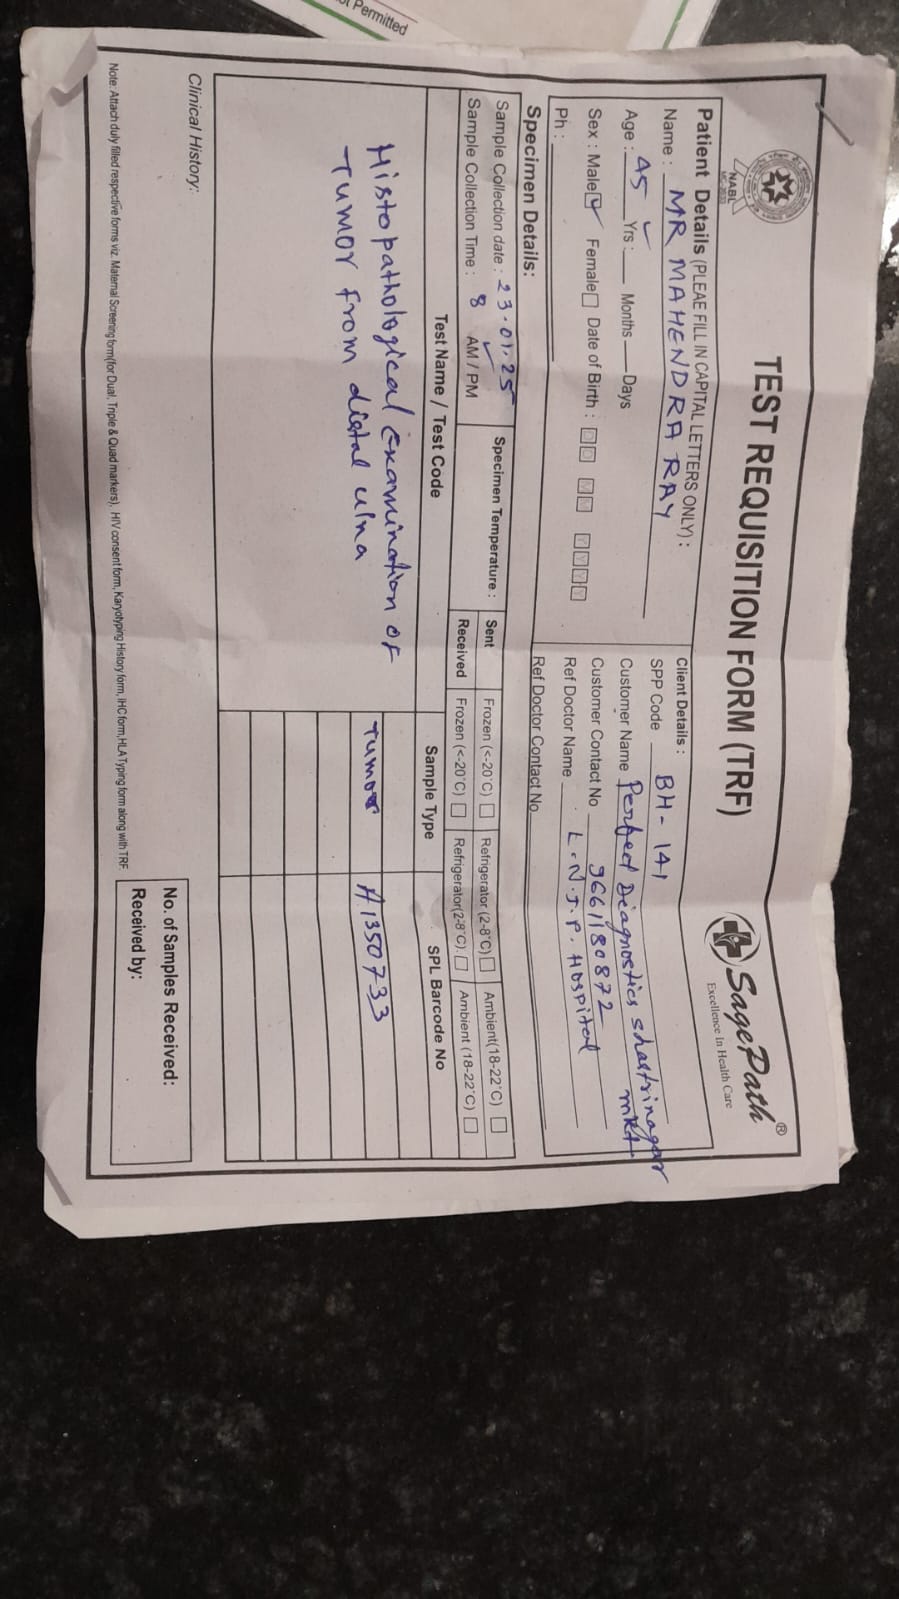 ot Permitted
NABL
TEST REQUISITION FORM (TRF)
SagePath®
Excellence In Health Care
Patient Details (PLEAE FILL IN CAPITAL LETTERS ONLY) :
Name : MR MAHENDRA RAY
Age : 45 Yrs : Months Days
Sex : Male Female Date of Birth : D D M M Y Y Y Y
Ph :
Client Details :
SPP Code BH-141
Customer Name Perfect Diagnostics shastrinagar mkt
Customer Contact No 9661180872
Ref Doctor Name L.N.J.P. Hospital
Ref Doctor Contact No
Specimen Details:
Sample Collection date : 23.01.25
Sample Collection Time : 8 AM / PM
Specimen Temperature :
Sent Frozen (<-20°C) Refrigerator (2-8°C) Ambient(18-22°C)
Received Frozen (<-20°C) Refrigerator(2-8°C) Ambient (18-22°C)
Test Name / Test Code Sample Type SPL Barcode No
Histopathological Examination OF
Tumor From distal ulna
Tumor A1350733
Clinical History:
No. of Samples Received:
Received by:
Note: Attach duly filled respective forms viz. Maternal Screening form(for Dual, Triple & Quad markers), HIV consent form, Karyotyping History form, IHC form, HLA Typing form along with TRF